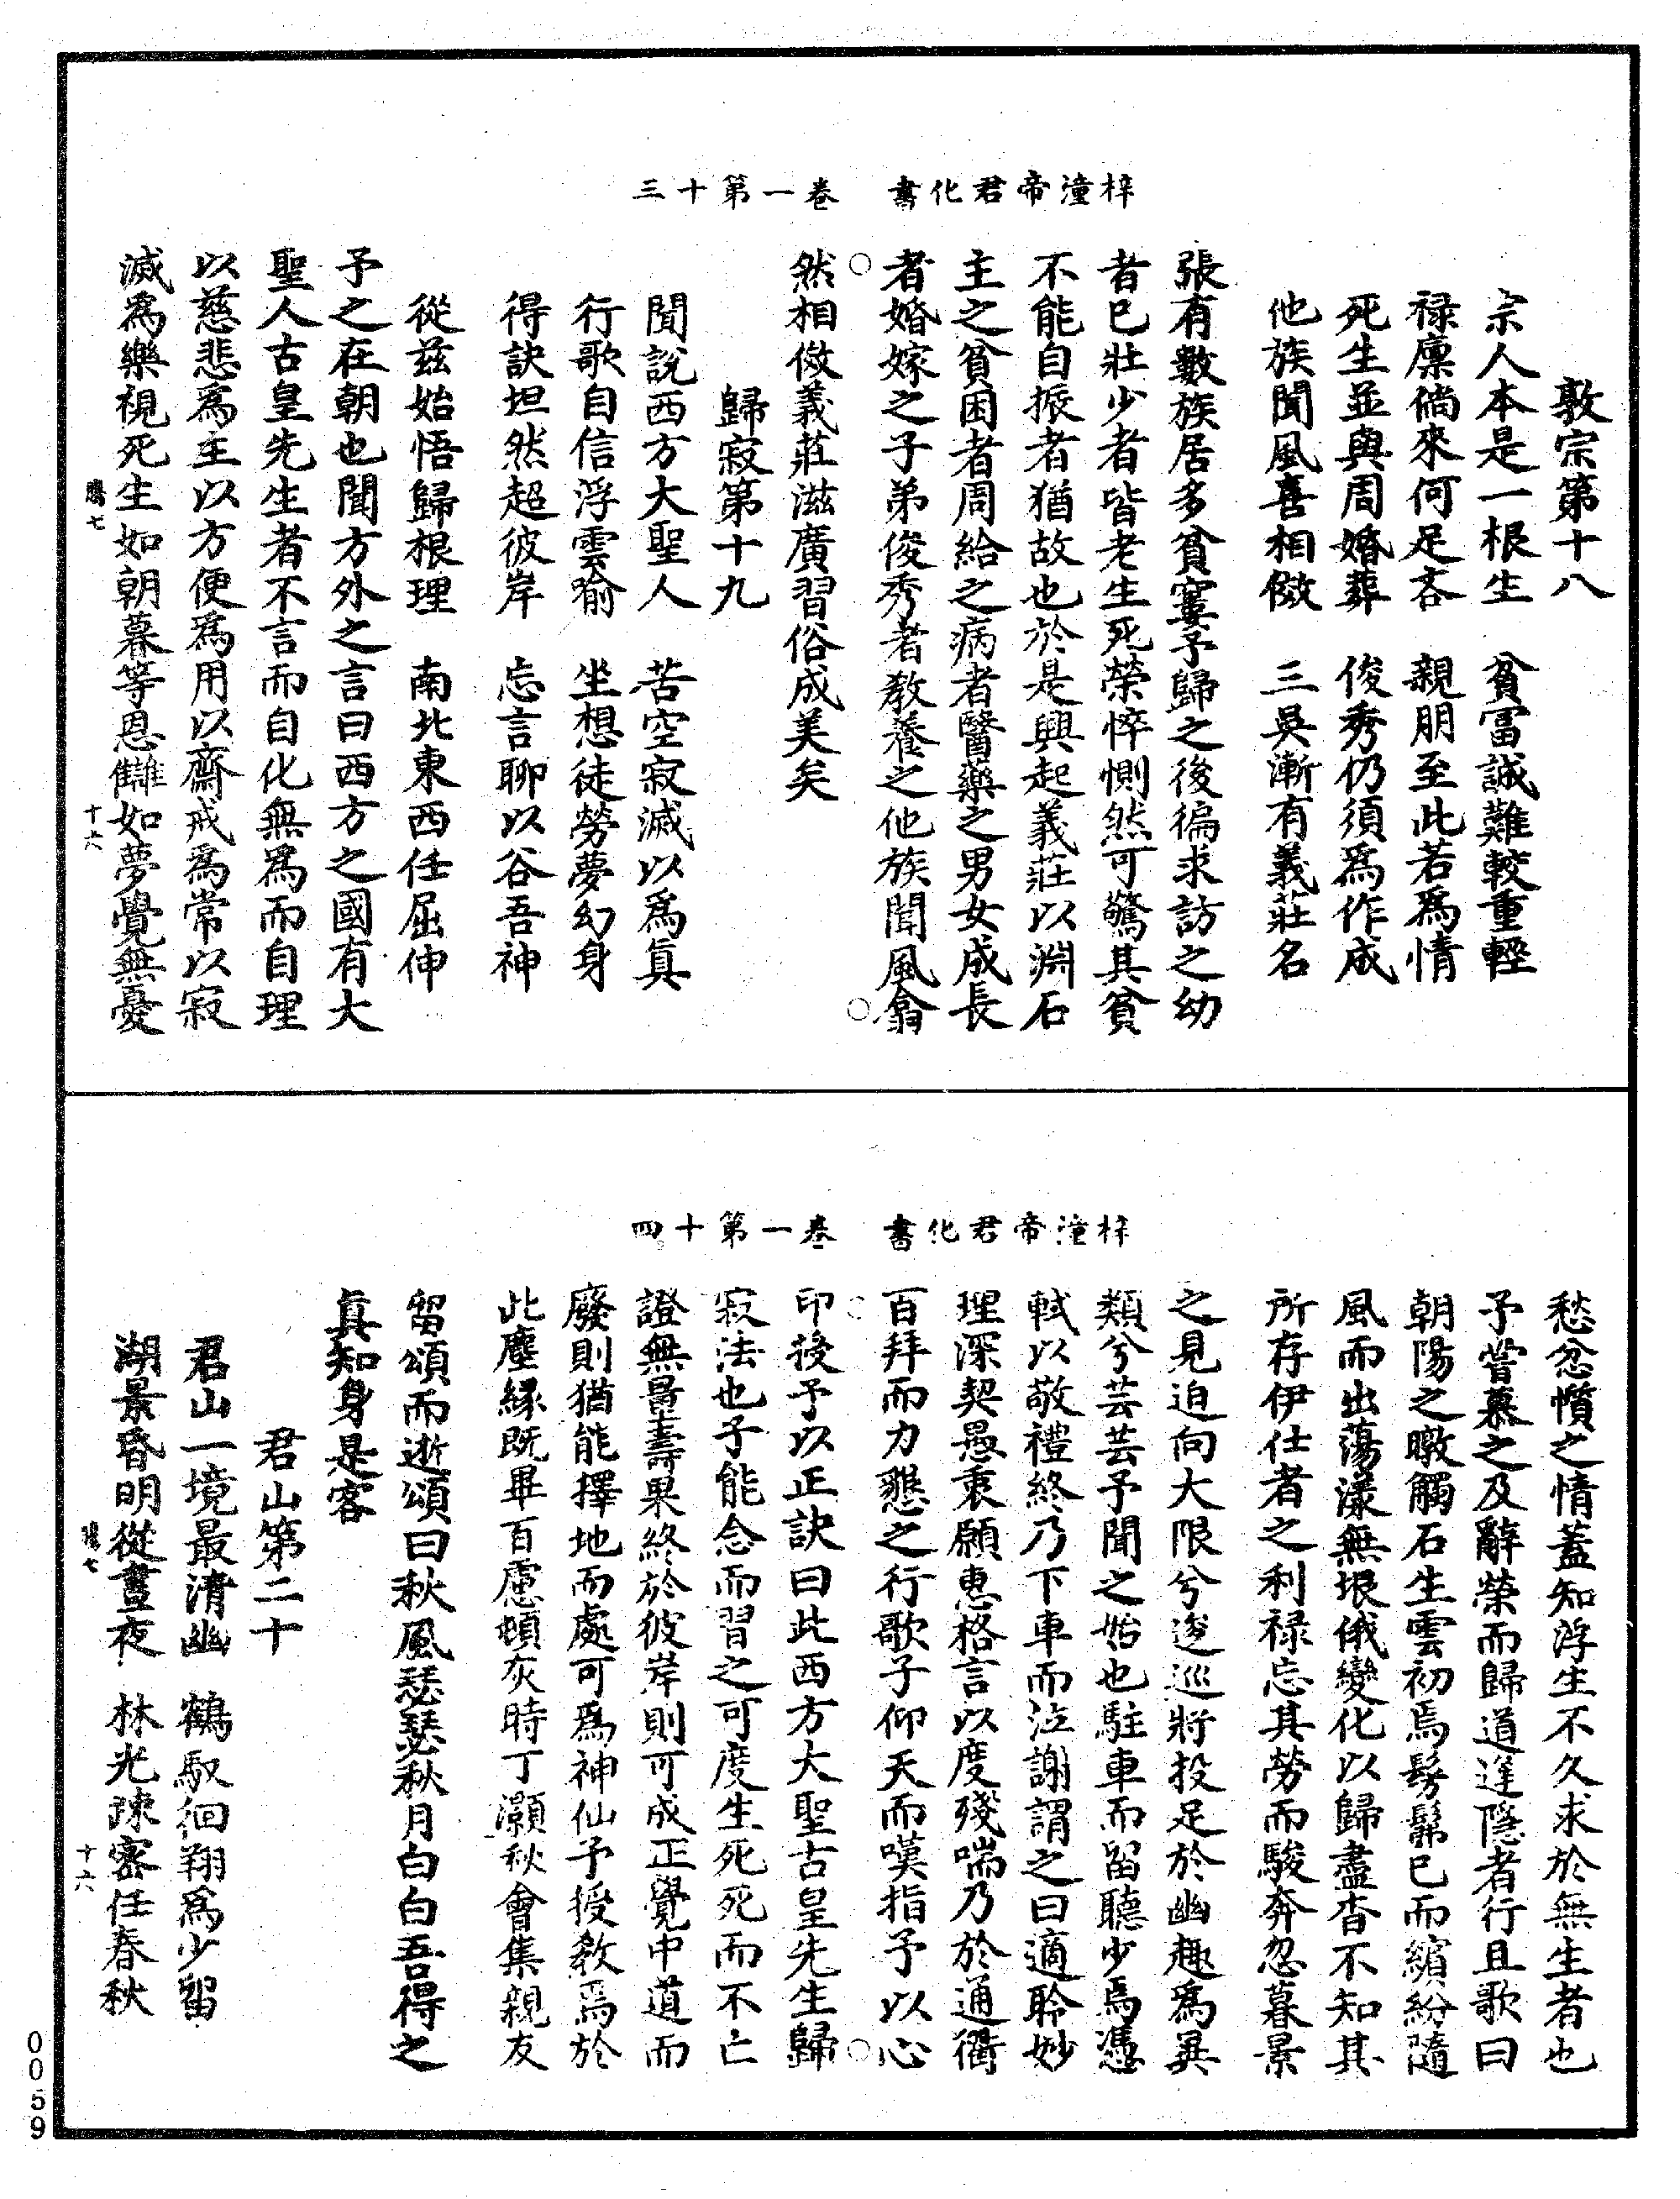 梓潼帝君化書　卷一第十三
敦宗第十八
宗人本是一根生　貧富誠難較重輕
祿廩倘來何足吝　親朋至此若為情
死生並與周婚葬　俊秀仍須為作成
他族聞風喜相傚　三吳漸有義莊名
張有數族居多貧窶予歸之後徧求訪之幼
者已壯少者皆老生死榮悴惻然可驚其貧
不能自振者猶故也於是興起義莊以淵石
主之貧困者周給之病者醫藥之男女成長
者婚嫁之子弟俊秀者教養之他族聞風翕
然相傚義莊滋廣習俗成美矣
歸寂第十九
聞說西方大聖人　苦空寂滅以為真
行歌自信浮雲喻　坐想徒勞夢幻身
得訣坦然超彼岸　忘言聊以谷吾神
從茲始悟歸根理　南北東西任屈伸
予之在朝也聞方外之言曰西方之國有大
聖人古皇先生者不言而自化無為而自理
以慈悲為主以方便為用以齋戒為常以寂
滅為樂視死生如朝暮等恩讎如夢覺無憂
騰七　十六
梓潼帝君化書　卷一第十四
愁忿懫之情蓋知浮生不久求於無生者也
予嘗慕之及辭榮而歸道逢隱者行且歌曰
朝陽之暾觸石生雲初焉髣髴已而繽紛隨
風而出蕩漾無垠俄變化以歸盡杳不知其
所存伊仕者之利祿忘其勞而駿奔忽暮景
之見迫向大限兮逡巡將投足於幽趣為異
類兮芸芸予聞之始也駐車而留聽少焉憑
軾以敬禮終乃下車而泣謝謂之曰適聆妙
理深契愚衷願惠格言以度殘喘乃於通衢
百拜而力懇之行歌子仰天而嘆指予以心
印授予以正訣曰此西方大聖古皇先生歸
寂法也子能念而習之可度生死死而不亡
證無量壽果終於彼岸則可成正覺中道而
廢則猶能擇地而處可為神仙予授教焉於
此塵緣既畢百慮頓灰時丁灝秋會集親友
留頌而逝頌曰秋風瑟瑟秋月白白吾得之
真知身是客
君山第二十
君山一境最清幽　鶴馭徊翔為少留
湖景昏明從晝夜　林光疎密任春秋
騰七　十六
0059